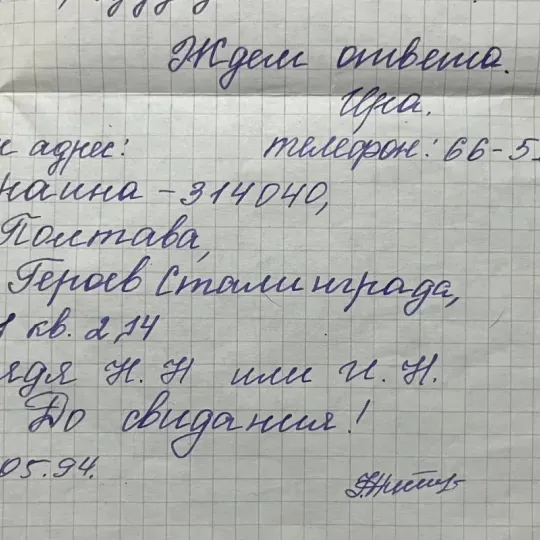 Ждем ответа.
Ира.
адрес: телефон: 66-5
наина - 314040,
Полтава,
Героев Сталинграда,
кв. 2,14
Н. Н или И. Н.
До свидания!
05.94.